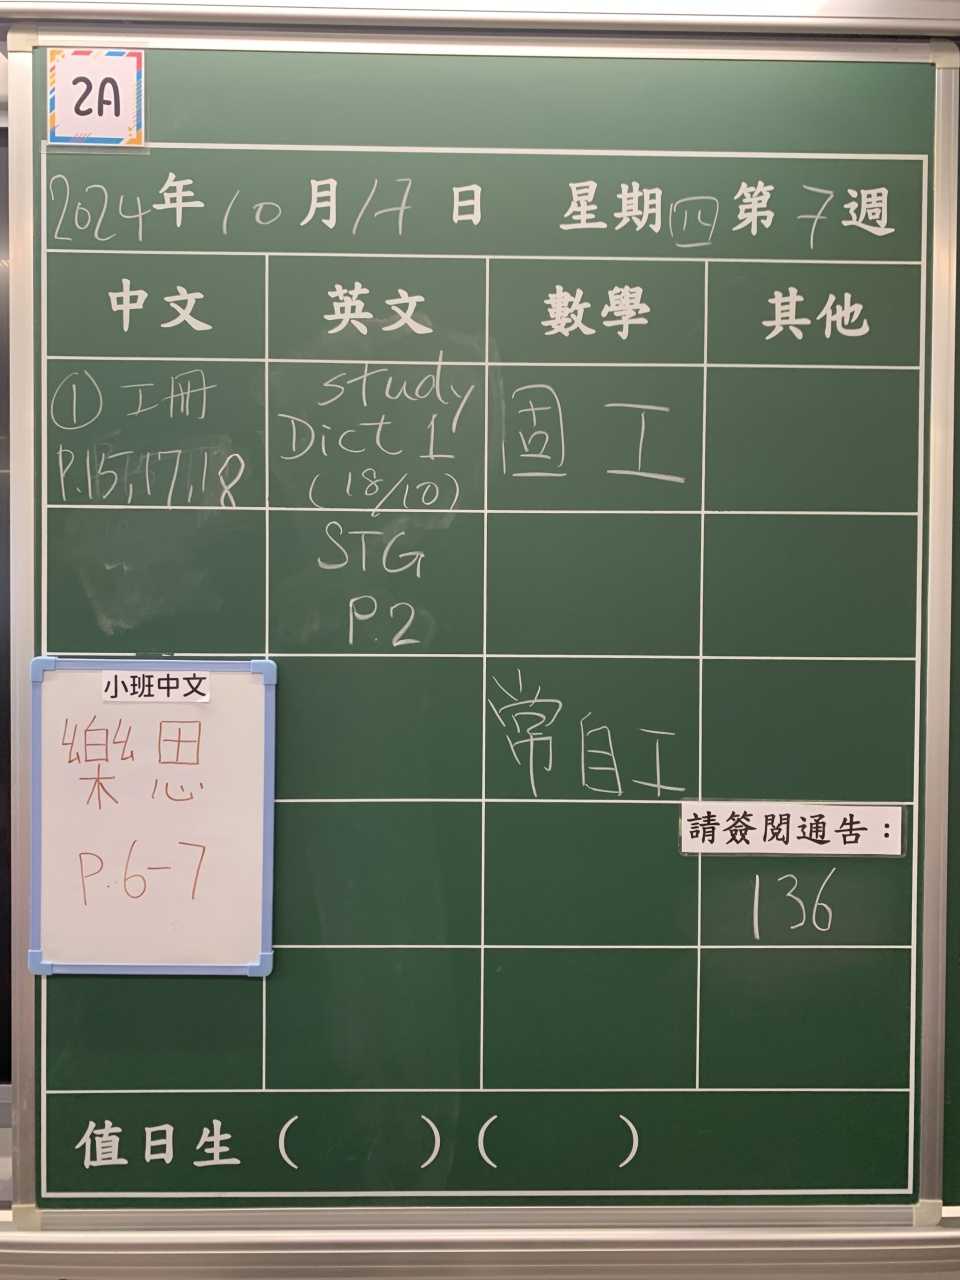 2A
2024年10月17日 星期四第7週
中文 英文 數學 其他
① 工冊
P.15,17,18
study
Dict 1
(18/10)
固工
STG
P.2
小班中文
樂思
P.6-7
常自工
請簽閱通告：
136
值日生（ ）（ ）